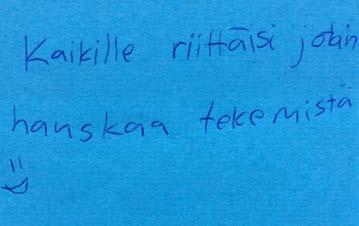 Kaikille riittäisi jotain
hauskaa tekemistä